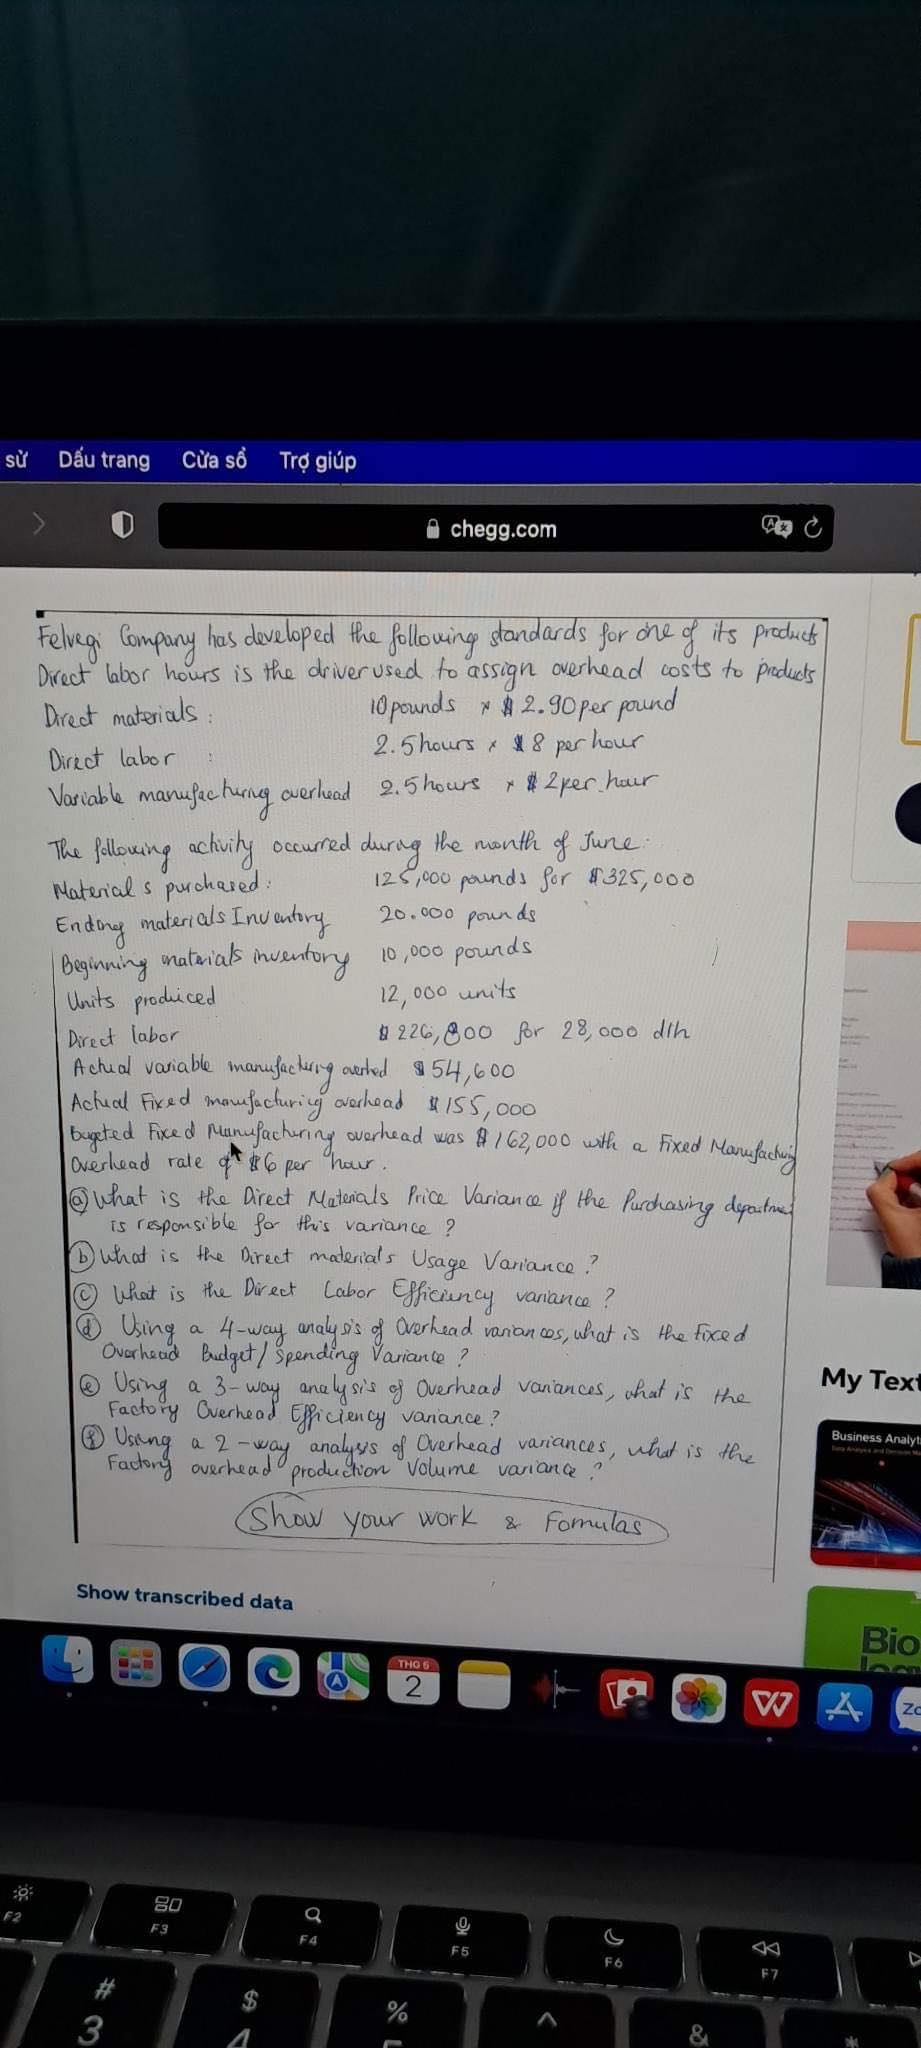 sử Dấu trang Cửa sổ Trợ giúp
chegg.com
Felvegi Company has developed the following standards for one of its products
Direct labor hours is the driver used to assign overhead costs to products
Direct materials : 10 pounds × $ 2.90 per pound
Direct labor : 2.5 hours × $8 per hour
Variable manufacturing overhead 2.5 hours × $ 2 per hour
The following activity occurred during the month of June:
Materials purchased: 125,000 pounds for $325,000
Ending materials Inventory 20.000 pounds
Beginning materials inventory 10,000 pounds
Units produced 12,000 units
Direct labor $ 226,800 for 28,000 dlh
Actual variable manufacturing overhed $54,600
Actual Fixed manufacturing overhead $155,000
Bugeted Fixed Manufacturing overhead was $162,000 with a Fixed Manufacturing
Overhead rate of $6 per hour.
(a) What is the Direct Materials Price Variance if the Purchasing departmen
is responsible for this variance ?
(b) What is the Direct materials Usage Variance ?
(c) What is the Direct Labor Efficiency variance ?
(d) Using a 4-way analysis of Overhead variances, what is the Fixed
Overhead Budget/Spending Variance ?
(e) Using a 3-way analysis of Overhead variances, what is the
Factory Overhead Efficiency variance?
(f) Using a 2-way analysis of Overhead variances, what is the
Factory overhead production Volume variance ?
Show your work & Fomulas
My Text
Business Analyt
Show transcribed data
Bio
THG 5
2
W
Zo
F2
F3
F4
F5
F6
F7
#
3
$
4
%
5
^
&
*